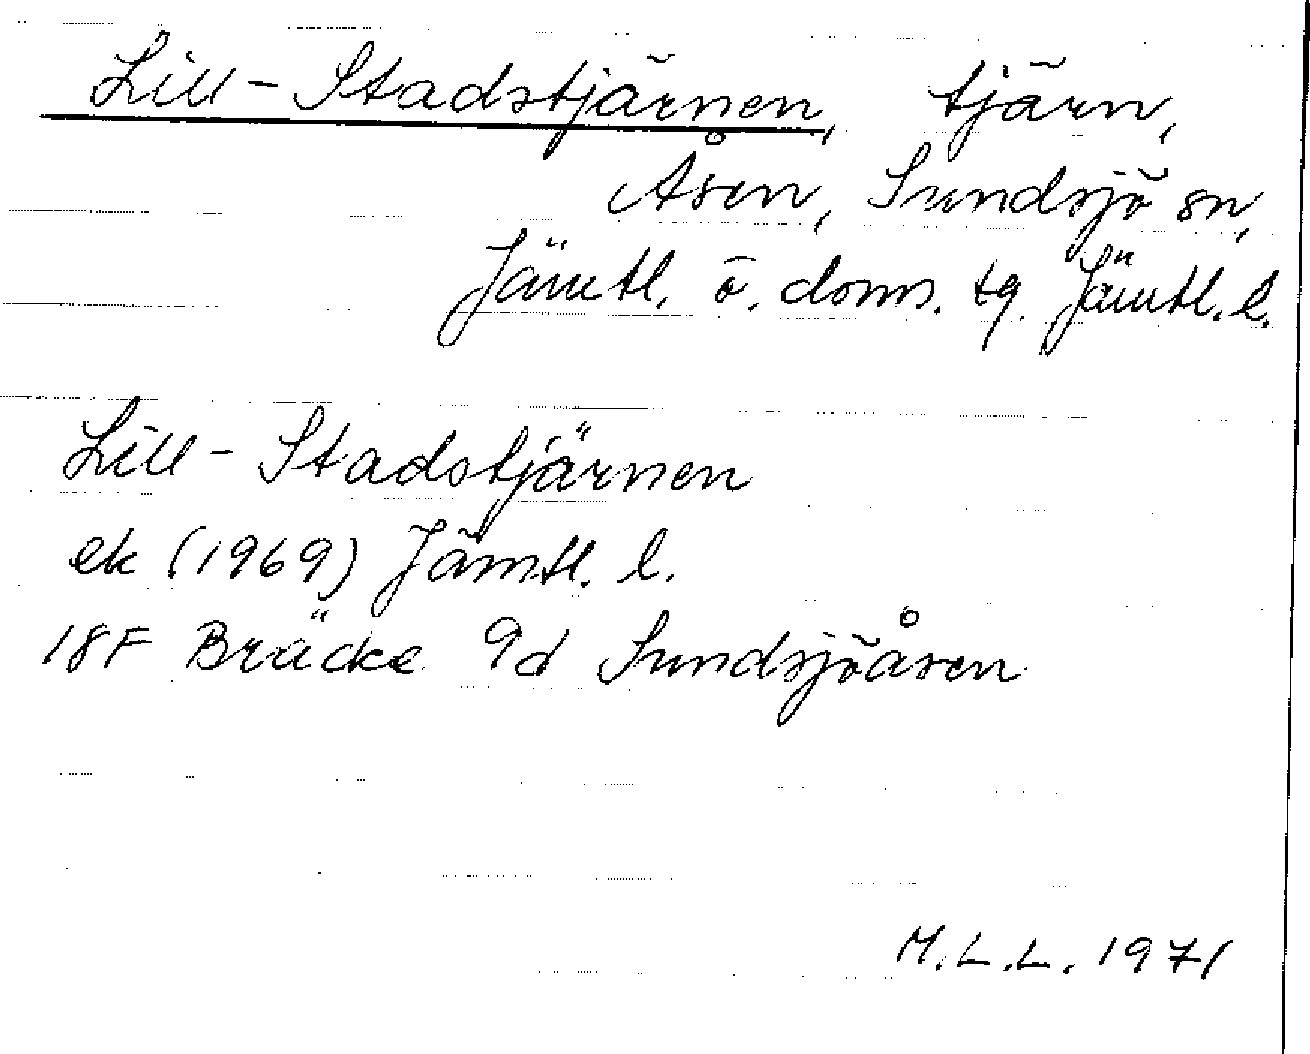 Lill-Stadstjärnen, tjärn,
Åsen, Sundsjö sn,
Jämtl. ö. doms. tg Jämtl. l.
Lill-Stadstjärnen
ek (1969) Jämtl. l.
18F Bräcke 9d Sundsjöåsen
M.L.L. 1971